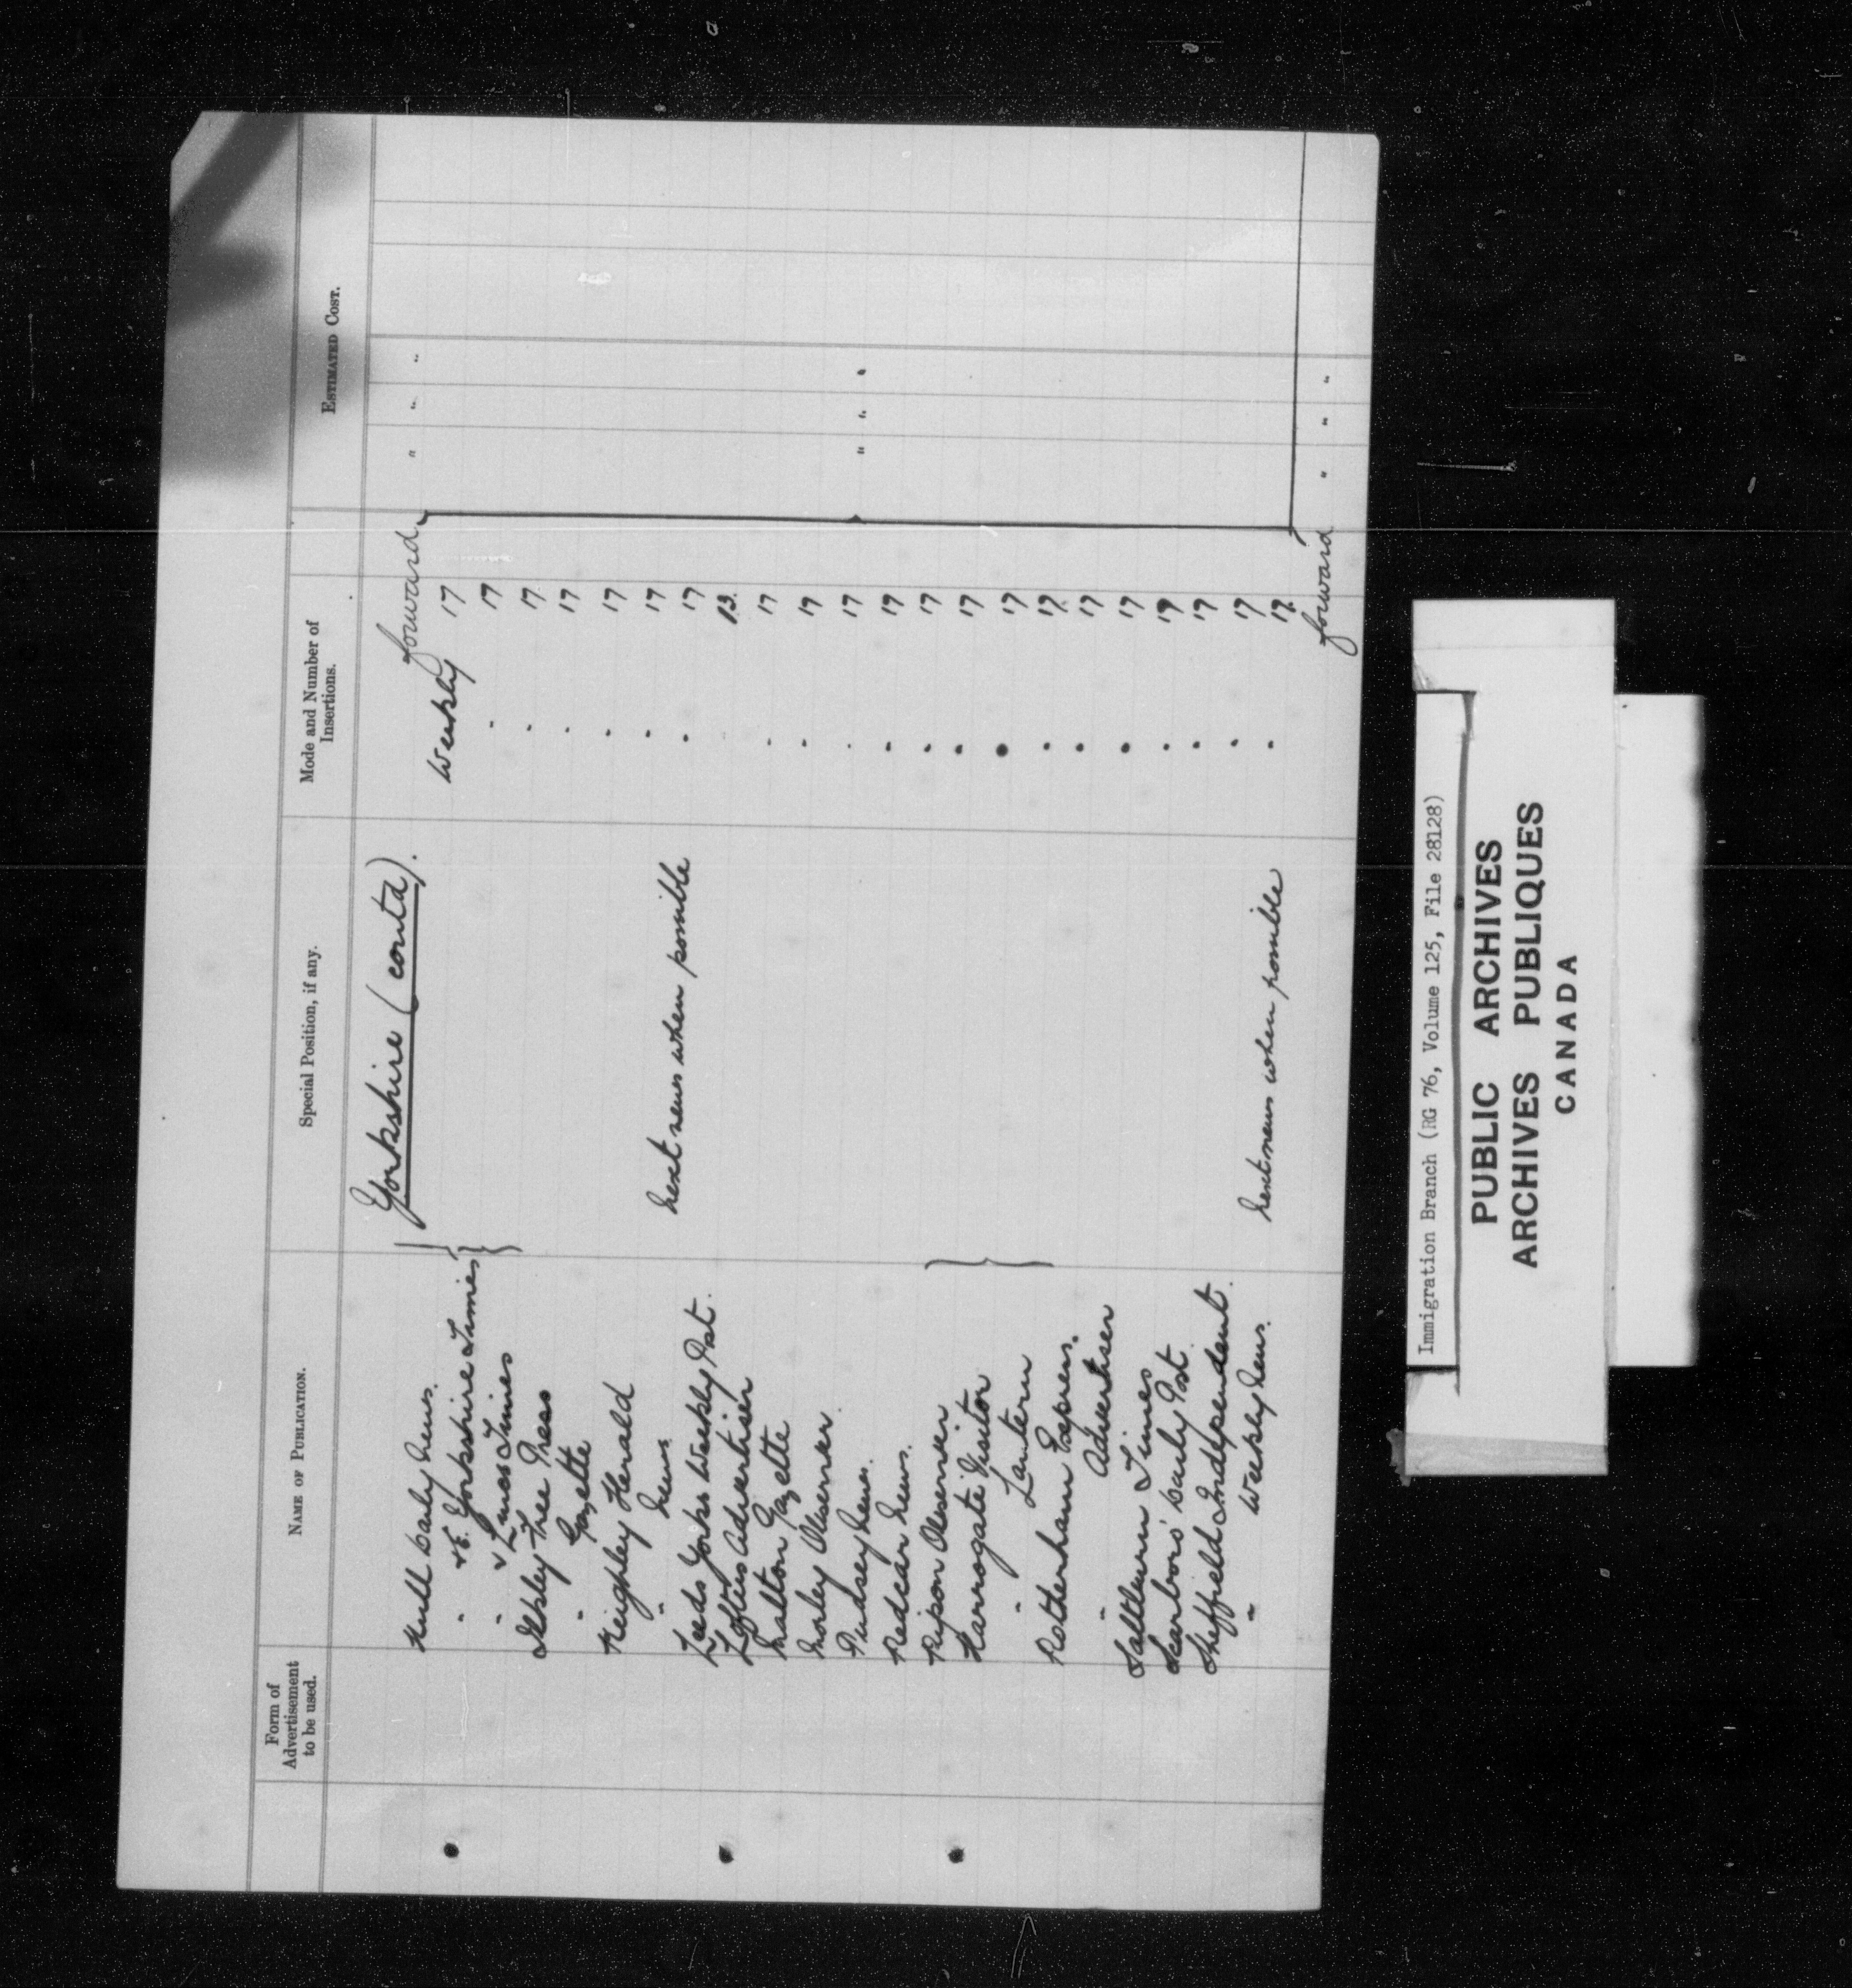 Form of Advertisement to be used. NAME OF PUBLICATION. Special Position, if any. Mode and Number of Insertions. ESTIMATED COST.
Yorkshire (contd). forward " " "
Hull Daily News. Weekly 17
" & E. Yorkshire Times " 17
" & Lincs Times " 17
Ilkley Free Press " 17
" Gazette " 17
Keighley Herald " 17
" News next news when possible " 17
Leeds Yorks Weekly Post. 13.
Loftus Advertiser " 17
Malton Gazette " 17
Morley Observer. " 17
Pudsey News. " 17
Redcar News. " 17
Ripon Observer " 17
Harrogate Visitor " 17
" Lantern " 17
Rotherham Express. " 17
" Advertiser " 17
Saltburn Times " 17
Scarboro' Daily Post " 17
Sheffield Independent. " 17
" Weekly News. next news when possible " 17.
forward " " "
Immigration Branch (RG 76, Volume 125, File 28128)
PUBLIC ARCHIVES
ARCHIVES PUBLIQUES
CANADA